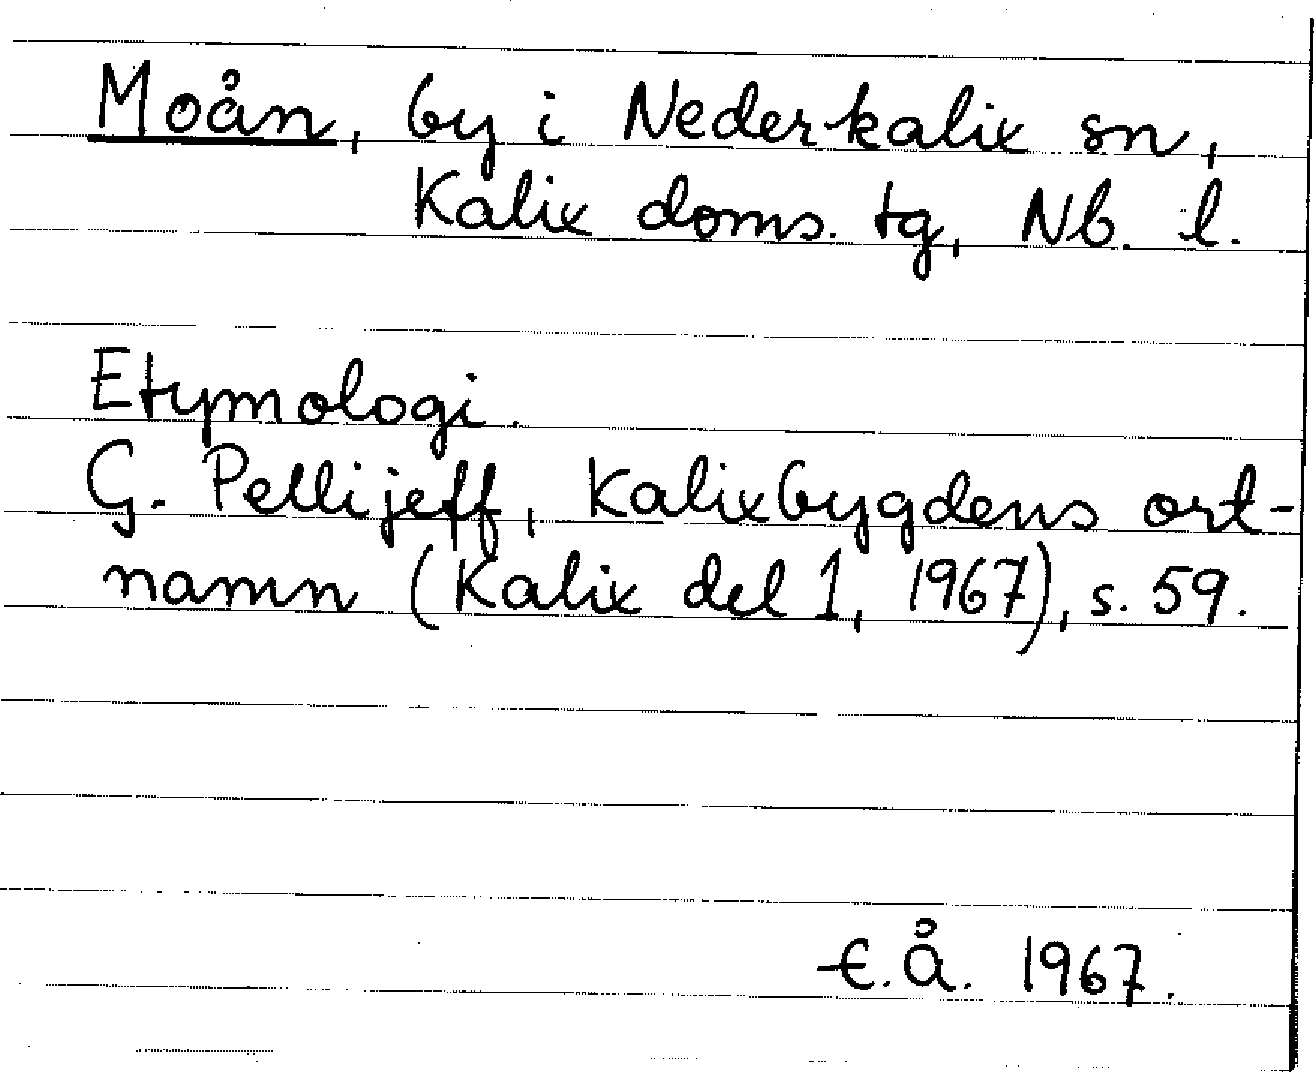 Moån, by i Nederkalix sn,
Kalix doms. tg, Nb. l.
Etymologi.
G. Pellijeff, Kalixbygdens ort-
namn (Kalix del 1, 1967), s. 59.
E.Å. 1967.